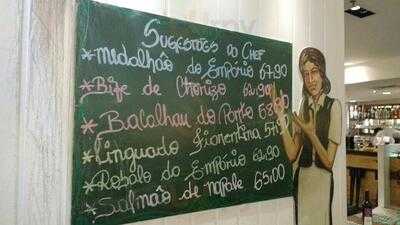 Sugestões do Chef
*medalhão do Empório 67,90
*Bife de Chorizo 62,90
*Bacalhau do Porto 68,90
*Linguado Fiorentina
*Robalo do Empório 62,90
*Salmão de napole 65,00